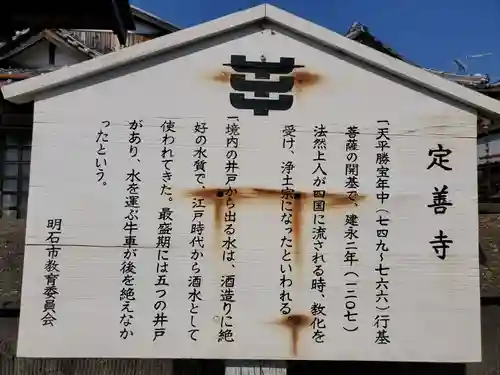 定善寺
一天平勝宝年中（七四九～七六六）行基
菩薩の開基で、建永二年（一二〇七）
法然上人が四国に流される時、教化を
受け、浄土宗になったといわれる
一境内の井戸から出る水は、酒造りに絶
好の水質で、江戸時代から酒水として
使われてきた。最盛期には五つの井戸
があり、水を運ぶ牛車が後を絶えなか
ったという。
明石市教育委員会